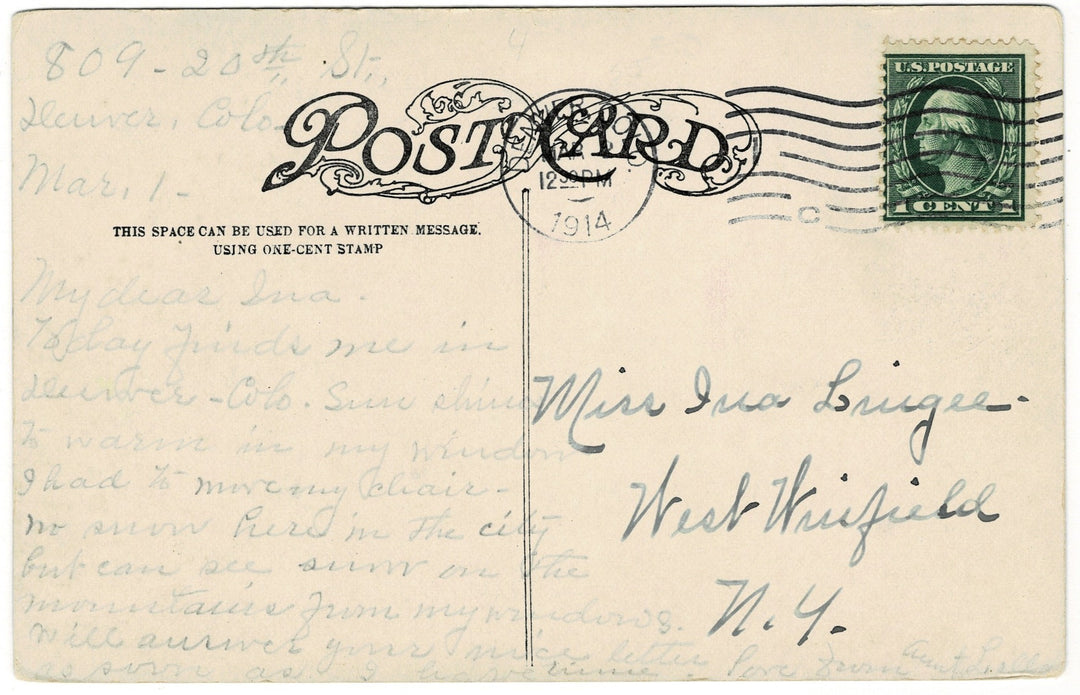 809 - 20th St.,
Denver, Colo -
Mar, 1 -
POST CARD
DENVER COLO
MAR
12 30 PM
1914
C
U.S. POSTAGE
1 CENT 1
THIS SPACE CAN BE USED FOR A WRITTEN MESSAGE.
USING ONE-CENT STAMP
My dear Ina -
To day finds me in
Denver - Colo. Sun shines
to warm in my window
I had to move my chair -
no snow here in the city
but can see snow on the
mountains from my windows.
Will answer your nice letter
as soon as I have time. Love from Aunt
Miss Ina
West Winfield
N.Y.